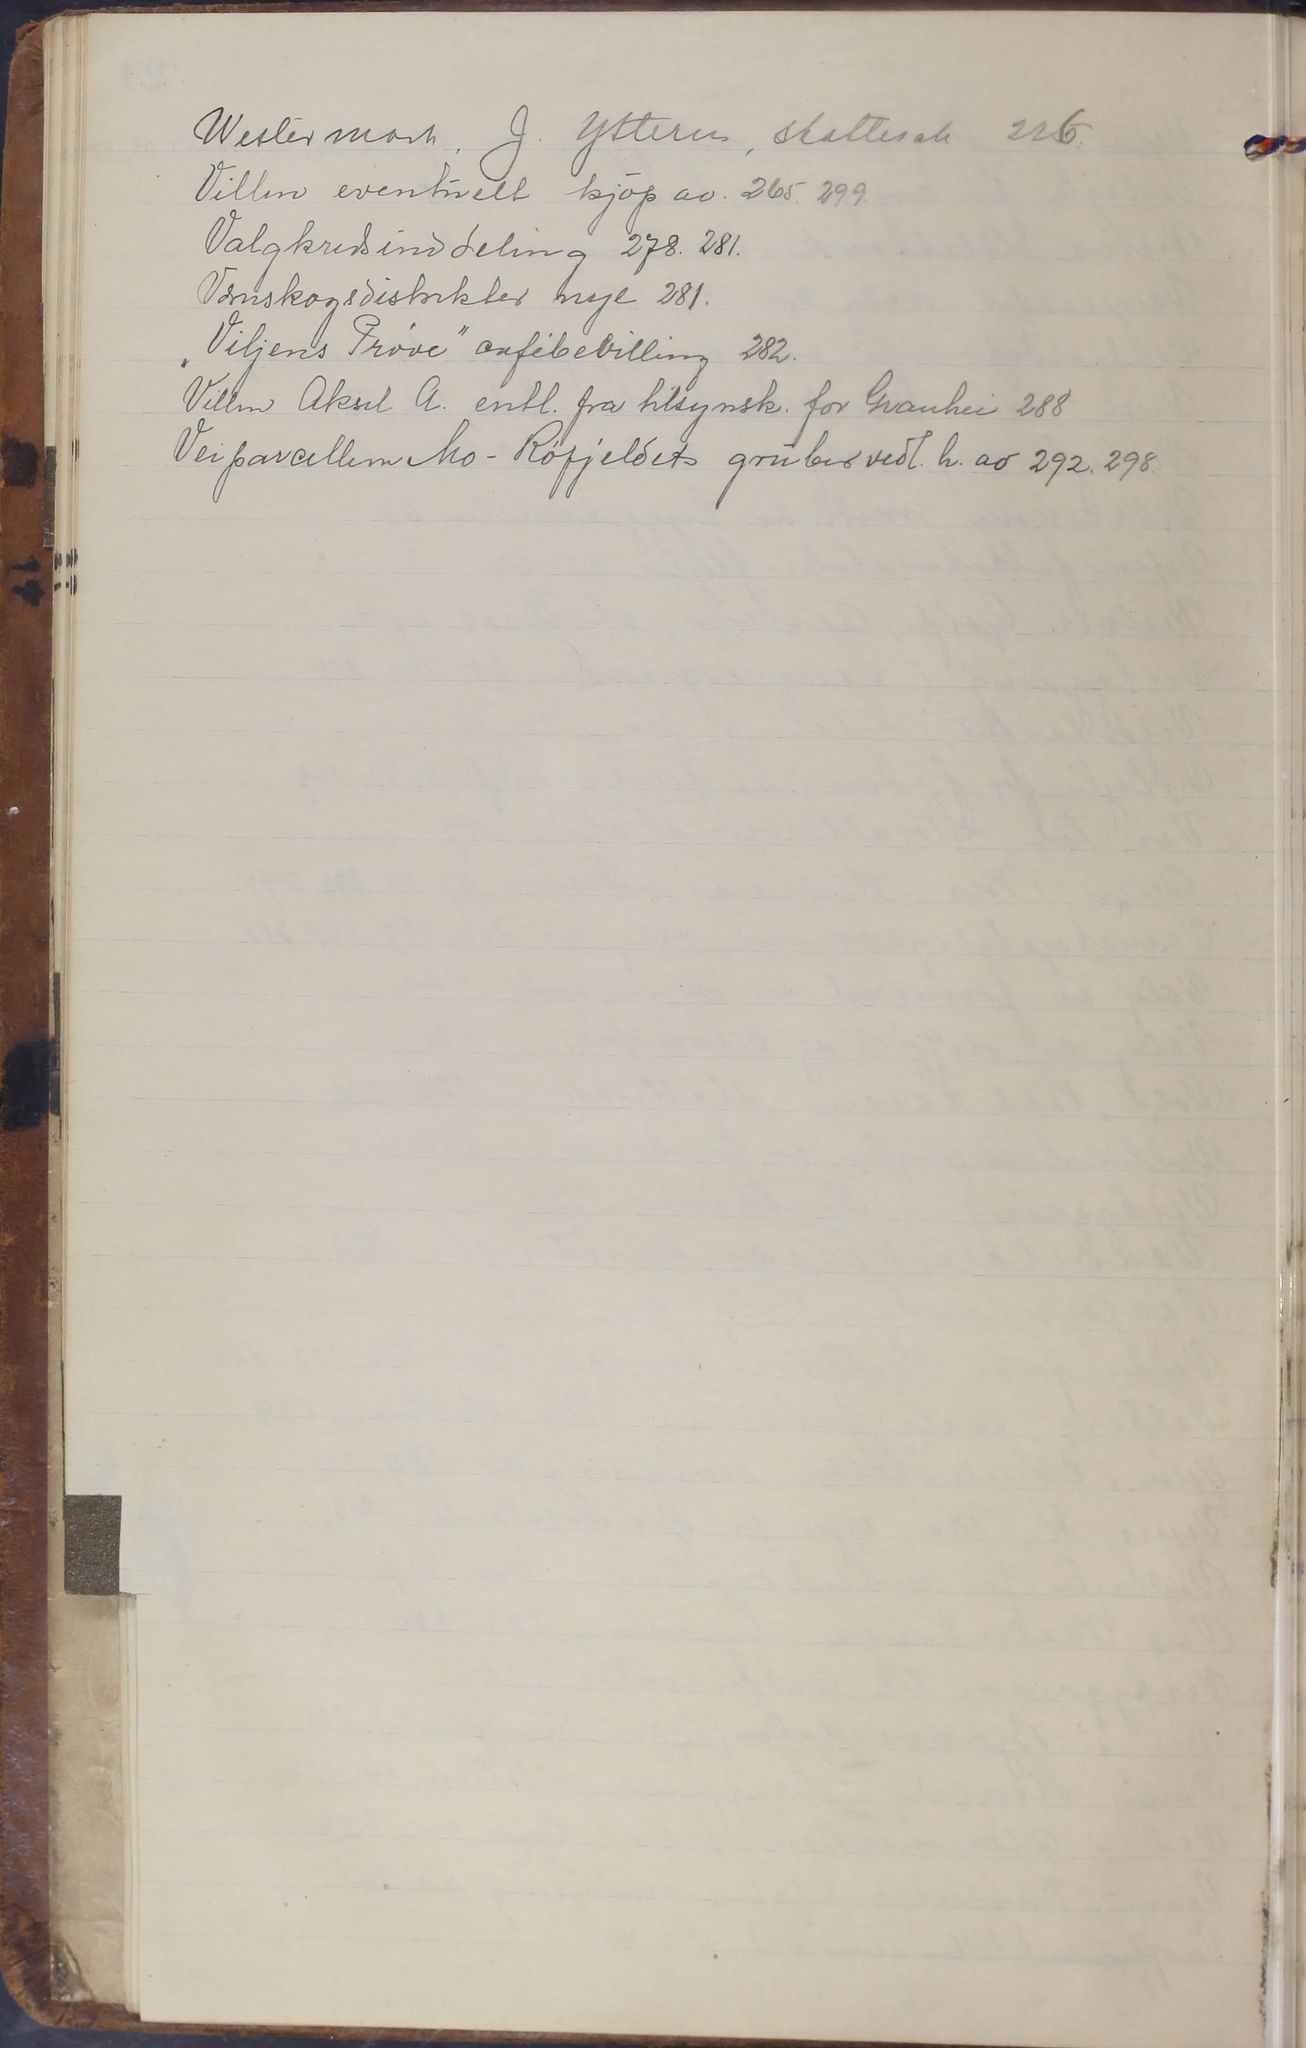 Westermark, J. Ytteren, skattesak 226.
Villen eventuelt kjøp av. 265. 299.
Valgkredsinddeling 278. 281.
Vernskogsdistrikter nye 281.
„Viljens Prøve" cafébevilling 282.
Villen Aksel A. entl. fra tilsynsk. for Granhei 288
Veiparcellen Mo - Røfjeldets gruber vedl. h. av 292. 298.